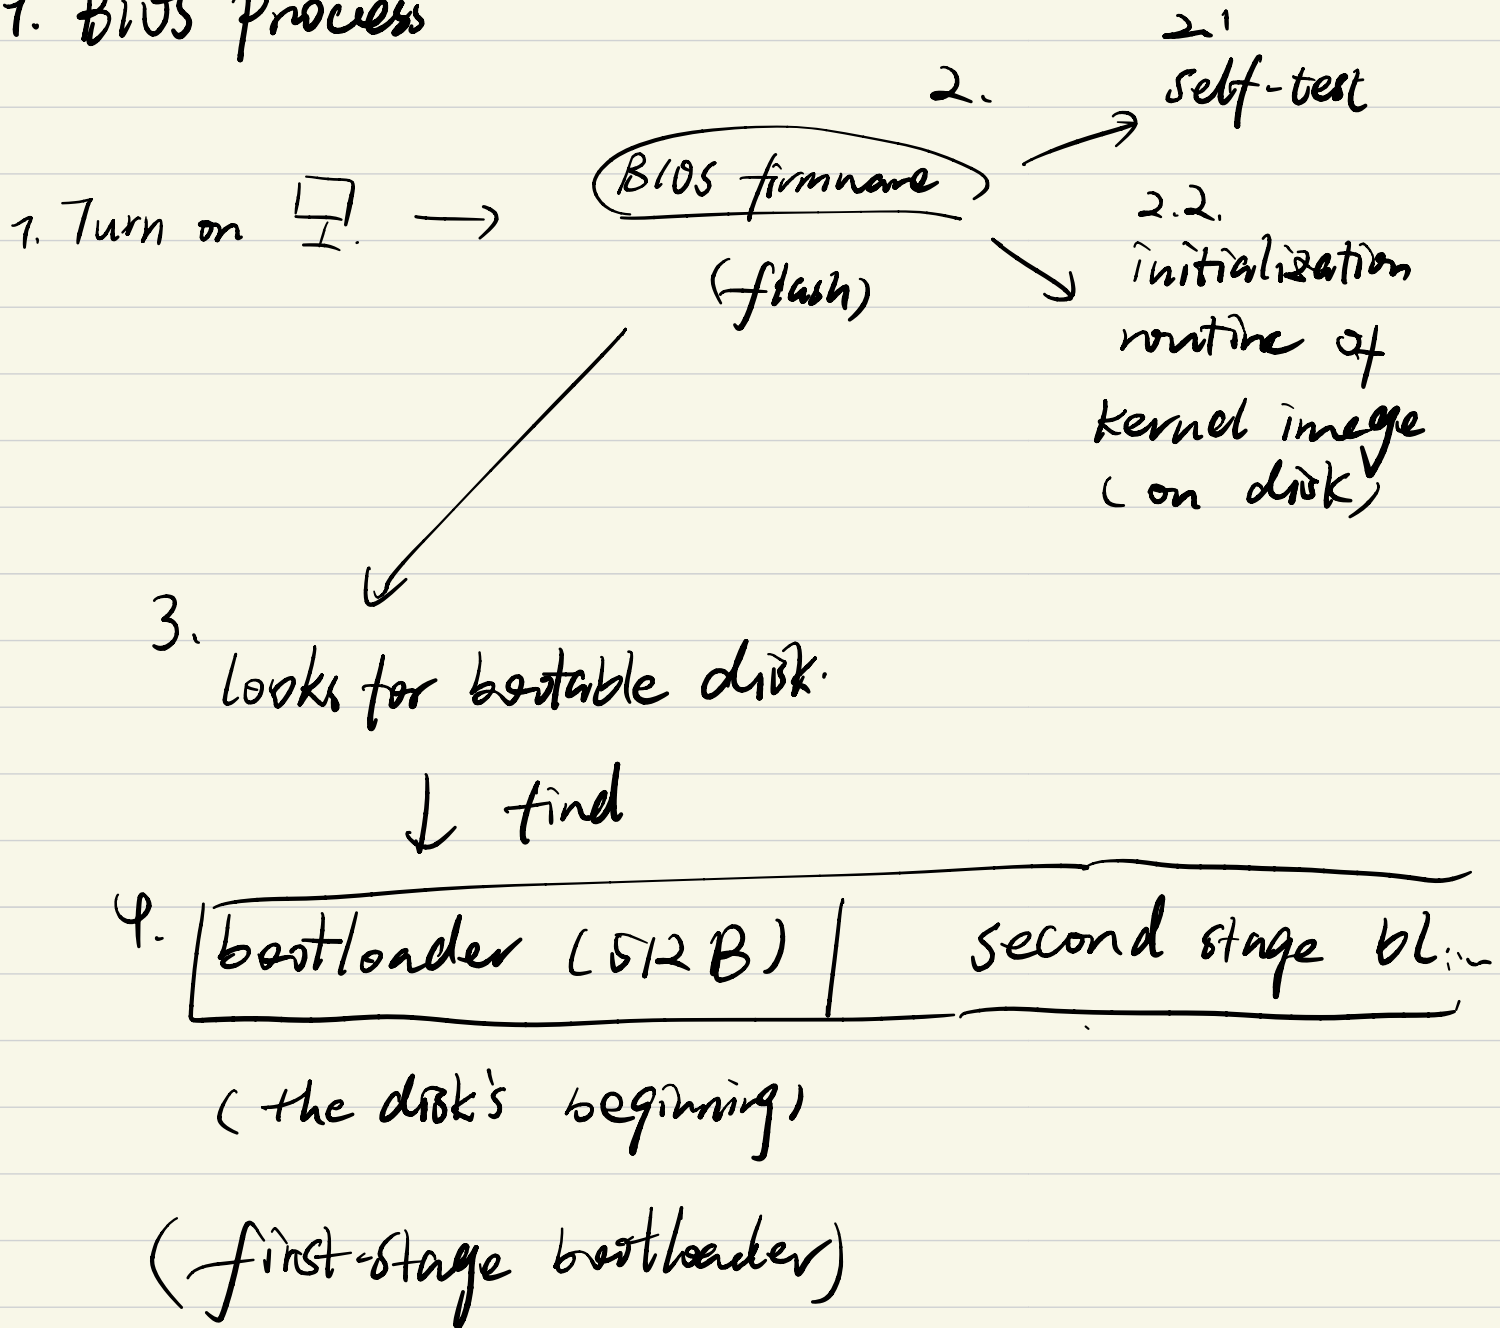 1. BIOS process
2.1
self-test
2.
BIOS firmname
1. Turn on
(flash)
2.2.
initialization
routine of
kernel image
(on disk)
3.
looks for bootable disk.
find
4.
bootloader (512B)
second stage bl...
(the disk's beginning)
(first-stage bootloader)